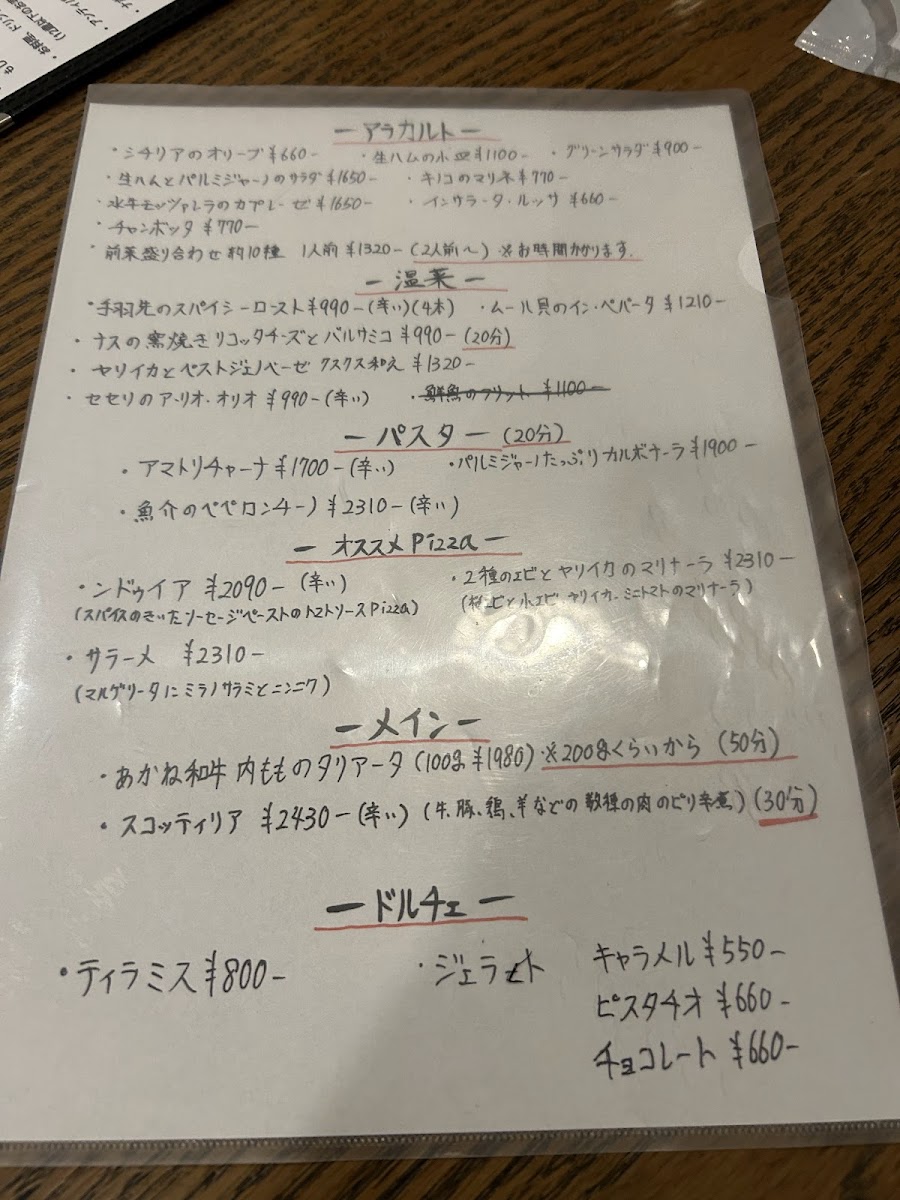 ・お料理、ドリン
(12歳以下のお
・アンティ
ーアラカルトー
・シチリアのオリーブ ¥660- ・生ハムの小皿 ¥1100- ・グリーンサラダ ¥900-
・生ハムとパルミジャーノのサラダ ¥1650- ・キノコのマリネ ¥770-
・水牛モッツァレラのカプレーゼ ¥1650- ・インサラータ・ルッサ ¥660-
・チャンボッタ ¥770-
・前菜盛り合わせ 約10種 1人前 ¥1320-(2人前〜)※お時間かかります。
ー温菜ー
・手羽先のスパイシーロースト ¥990-(辛い)(4本) ・ムール貝のイン・ペパータ ¥1210-
・ナスの窯焼き リコッタチーズとバルサミコ ¥990-(20分)
・ヤリイカとペストジェノベーゼ クスクス和え ¥1320-
・セセリのアーリオ・オリオ ¥990-(辛い) ・鮮魚のフリット ¥1100-
ーパスター(20分)
・アマトリチャーナ ¥1700-(辛い) ・パルミジャーノたっぷりカルボナーラ ¥1900-
・魚介のペペロンチーノ ¥2310-(辛い)
ーオススメPizzaー
・ンドゥイア ¥2090-(辛い) ・2種のエビとヤリイカのマリナーラ ¥2310-
(スパイスのきいたソーセージペーストのトマトソースPizza) (桜エビと小エビ、ヤリイカ、ミニトマトのマリナーラ)
・サラーメ ¥2310-
(マルゲリータにミラノサラミとニンニク)
ーメインー
・あかね和牛 内もものタリアータ (100g ¥1980) ※200gくらいから (50分)
・スコッティリア ¥2430-(辛い) (牛、豚、鶏、羊などの数種の肉のピリ辛煮) (30分)
ードルチェー
・ティラミス ¥800- ・ジェラート キャラメル ¥550-
ピスタチオ ¥660-
チョコレート ¥660-